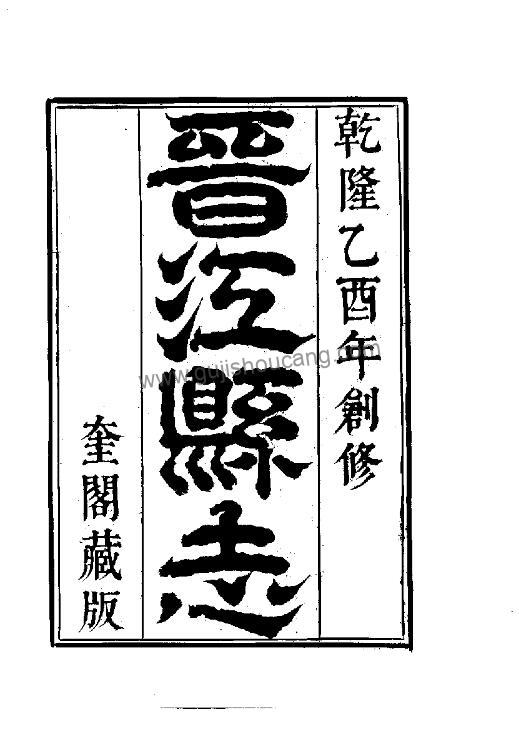 乾隆乙酉年創修
晋江縣志
奎閣藏版
www.gujishoucang.com